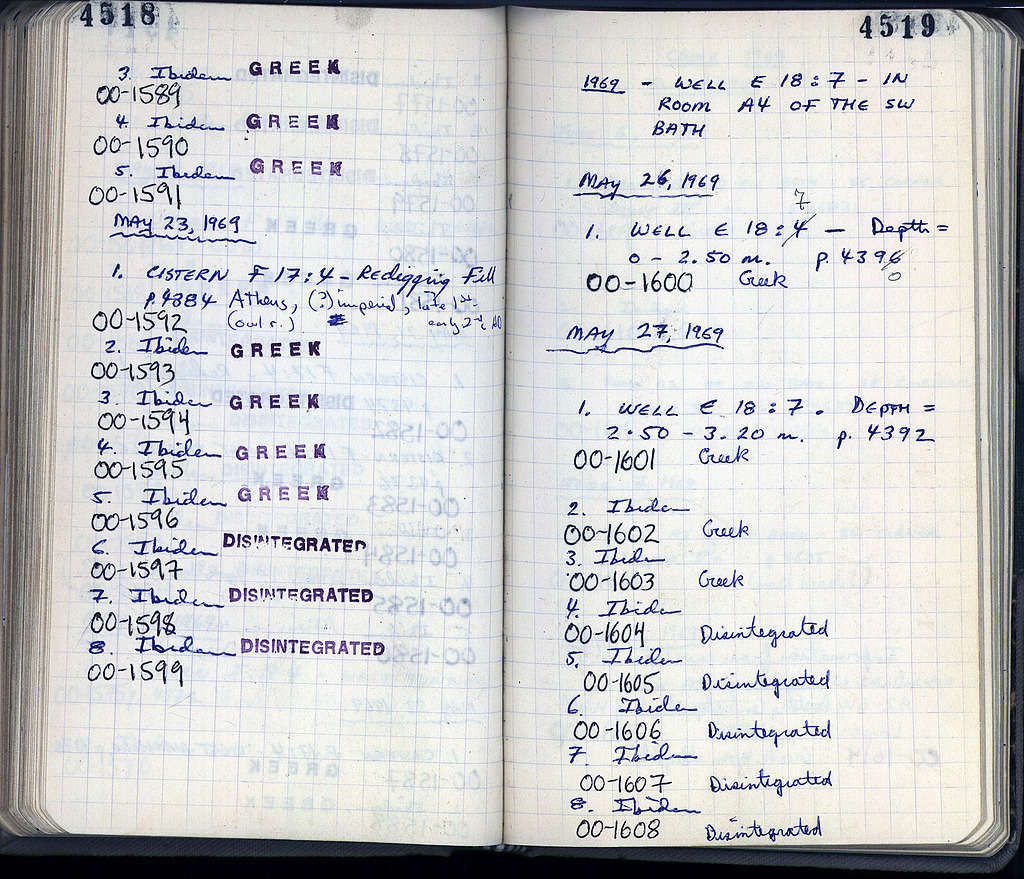 4518
3. Ibidem GREEK
00-1589
4. Ibidem GREEK
00-1590
5. Ibidem GREEK
00-1591
MAY 23, 1969
1. CISTERN F 17:4 - Redigging Fill
p. 4384 Athens, (?) imperial, late 1st-
00-1592 (owl r.) early 2nd c. AD
2. Ibidem GREEK
00-1593
3. Ibidem GREEK
00-1594
4. Ibidem GREEK
00-1595
5. Ibidem GREEK
00-1596
6. Ibidem DISINTEGRATED
00-1597
7. Ibidem DISINTEGRATED
00-1598
8. Ibidem DISINTEGRATED
00-1599
4519
1969 - WELL E 18:7 - IN
ROOM A4 OF THE SW
BATH
MAY 26, 1969
7
1. WELL E 18:4 - Depth =
0 - 2.50 m. p. 4396
0
00-1600 Greek
MAY 27, 1969
1. WELL E 18:7. DEPTH =
2.50 - 3.20 m. p. 4392
00-1601 Greek
2. Ibidem
00-1602 Greek
3. Ibidem
00-1603 Greek
4. Ibidem
00-1604 Disintegrated
5. Ibidem
00-1605 Disintegrated
6. Ibidem
00-1606 Disintegrated
7. Ibidem
00-1607 Disintegrated
8. Ibidem
00-1608 Disintegrated